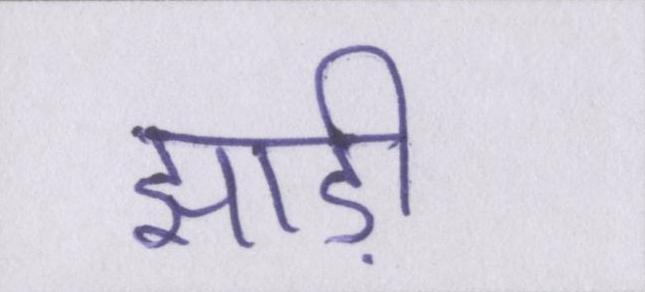 झाड़ी